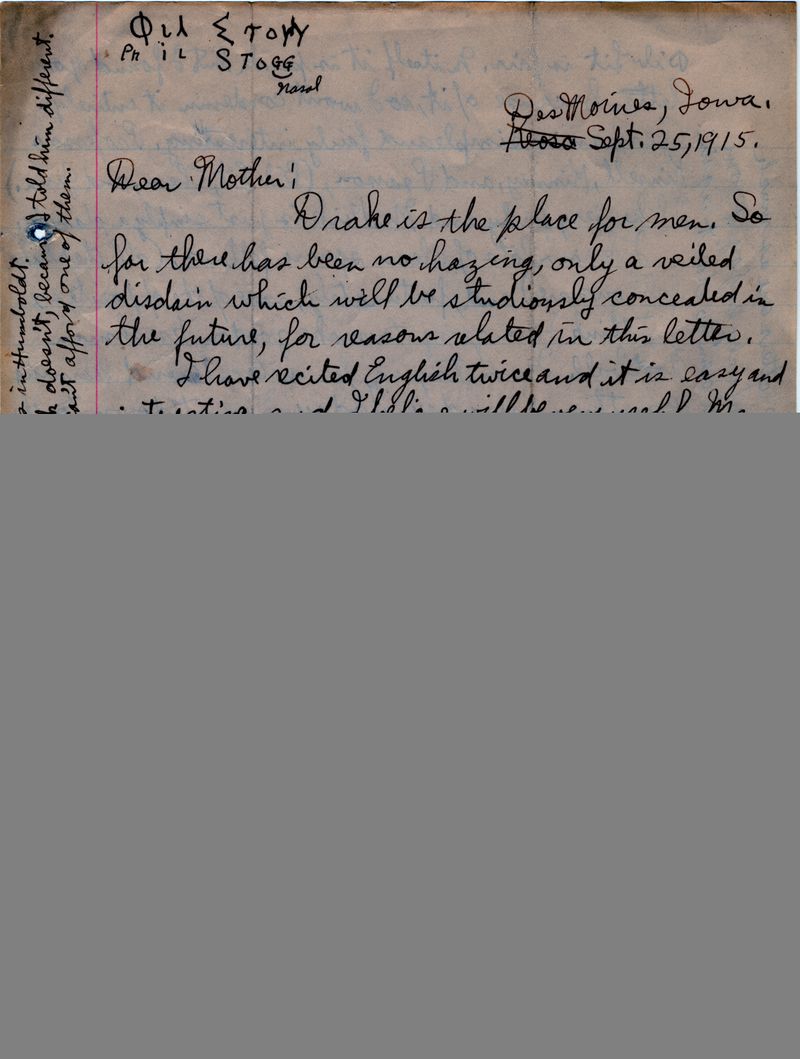 Φιλ Στογγ
Ph i L STOGG
nasal
Des Moines, Iowa.
Keosa Sept. 25, 1915.
Dear Mother!
Drake is the place for men. So
far there has been no hazing, only a veiled
disdain which will be studiously concealed in
the future, for reasons related in this letter.
I have recited English twice and it is easy and
in Humboldt.
doesn't, because I told him different.
can't afford one of them.